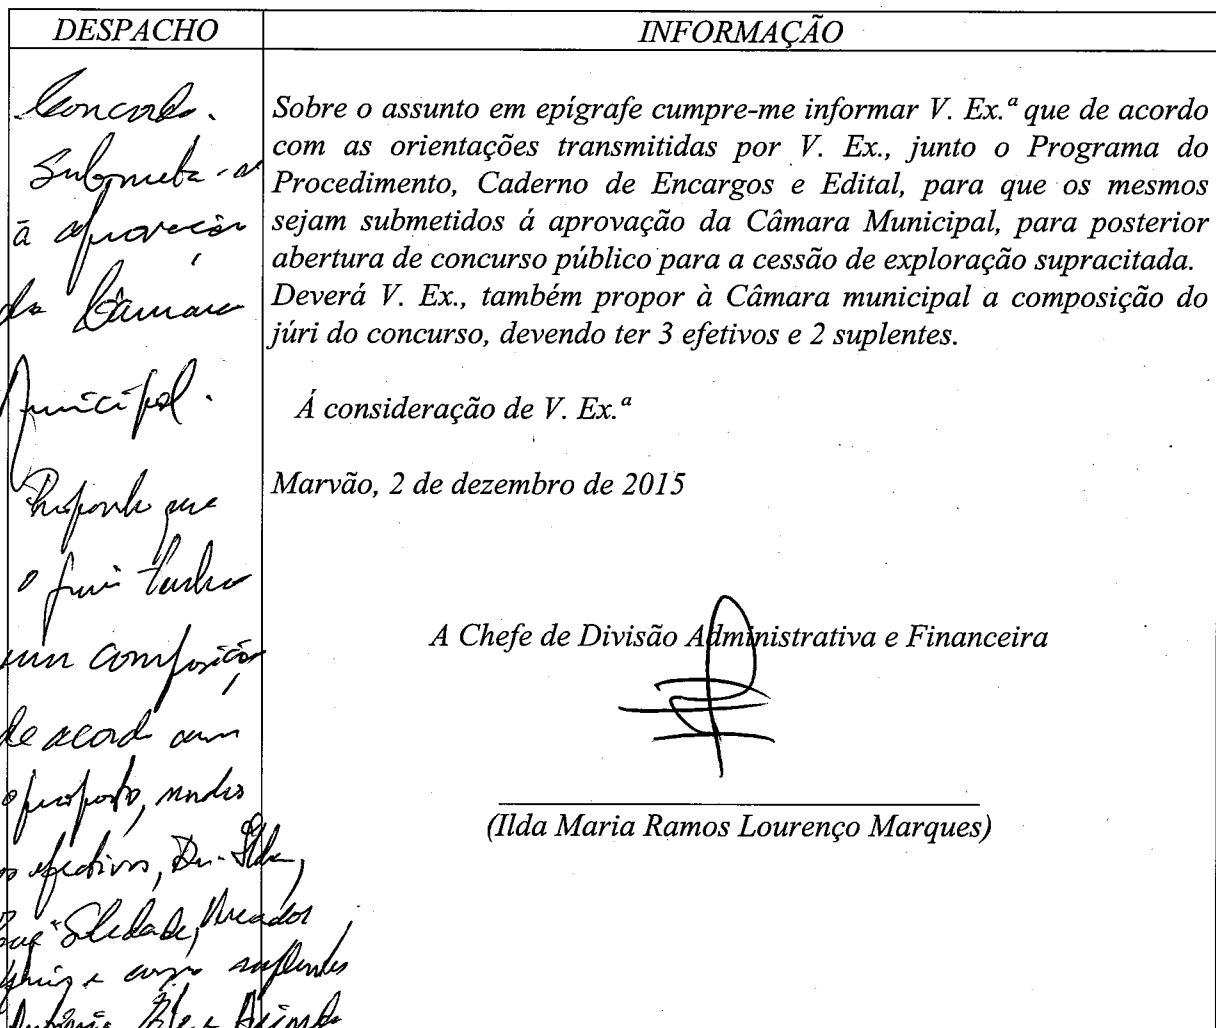 DESPACHO
INFORMAÇÃO
Concordo.
Submeta-se
à aprovação
da Câmara
Municipal.
Proponho que
o júri tenha
uma composição
de acordo com
o proposto, sendo
os efectivos, Dra. Ilda,
Soledade, Vereador
e como suplentes
Sobre o assunto em epígrafe cumpre-me informar V. Ex.ª que de acordo
com as orientações transmitidas por V. Ex., junto o Programa do
Procedimento, Caderno de Encargos e Edital, para que os mesmos
sejam submetidos á aprovação da Câmara Municipal, para posterior
abertura de concurso público para a cessão de exploração supracitada.
Deverá V. Ex., também propor à Câmara municipal a composição do
júri do concurso, devendo ter 3 efetivos e 2 suplentes.
Á consideração de V. Ex.ª
Marvão, 2 de dezembro de 2015
A Chefe de Divisão Administrativa e Financeira
(Ilda Maria Ramos Lourenço Marques)